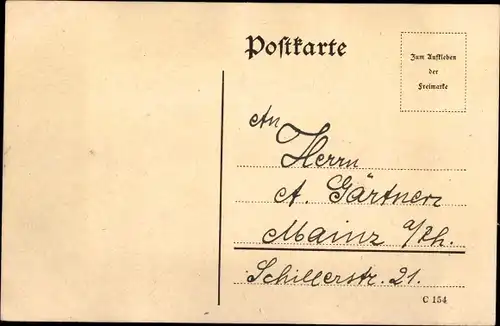 Postkarte
Zum Aufkleben
der
Freimarke
An
Herrn
A. Gärtner
Mainz a/Rh.
Schillerstr. 21.
C 154